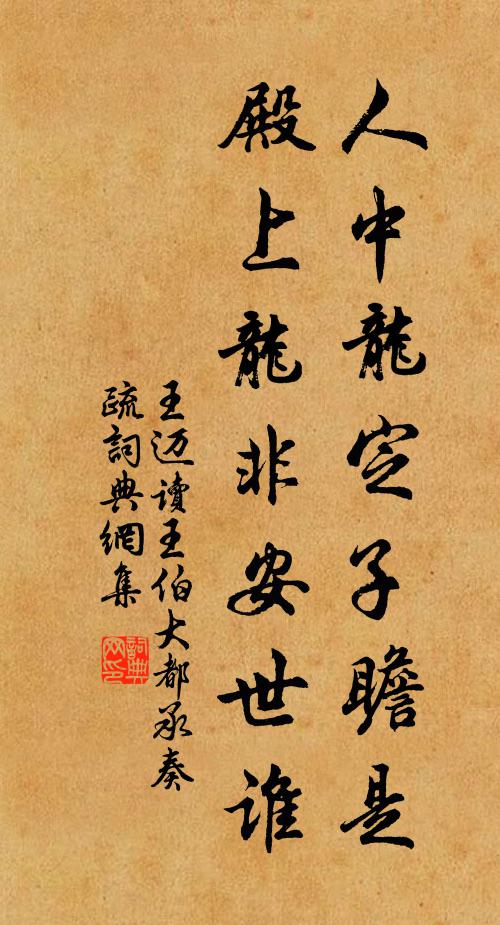 人中龍定子瞻是
殿上龍非安世誰
王迈讀王伯大都承奏
疏詞典網集
詞典网印